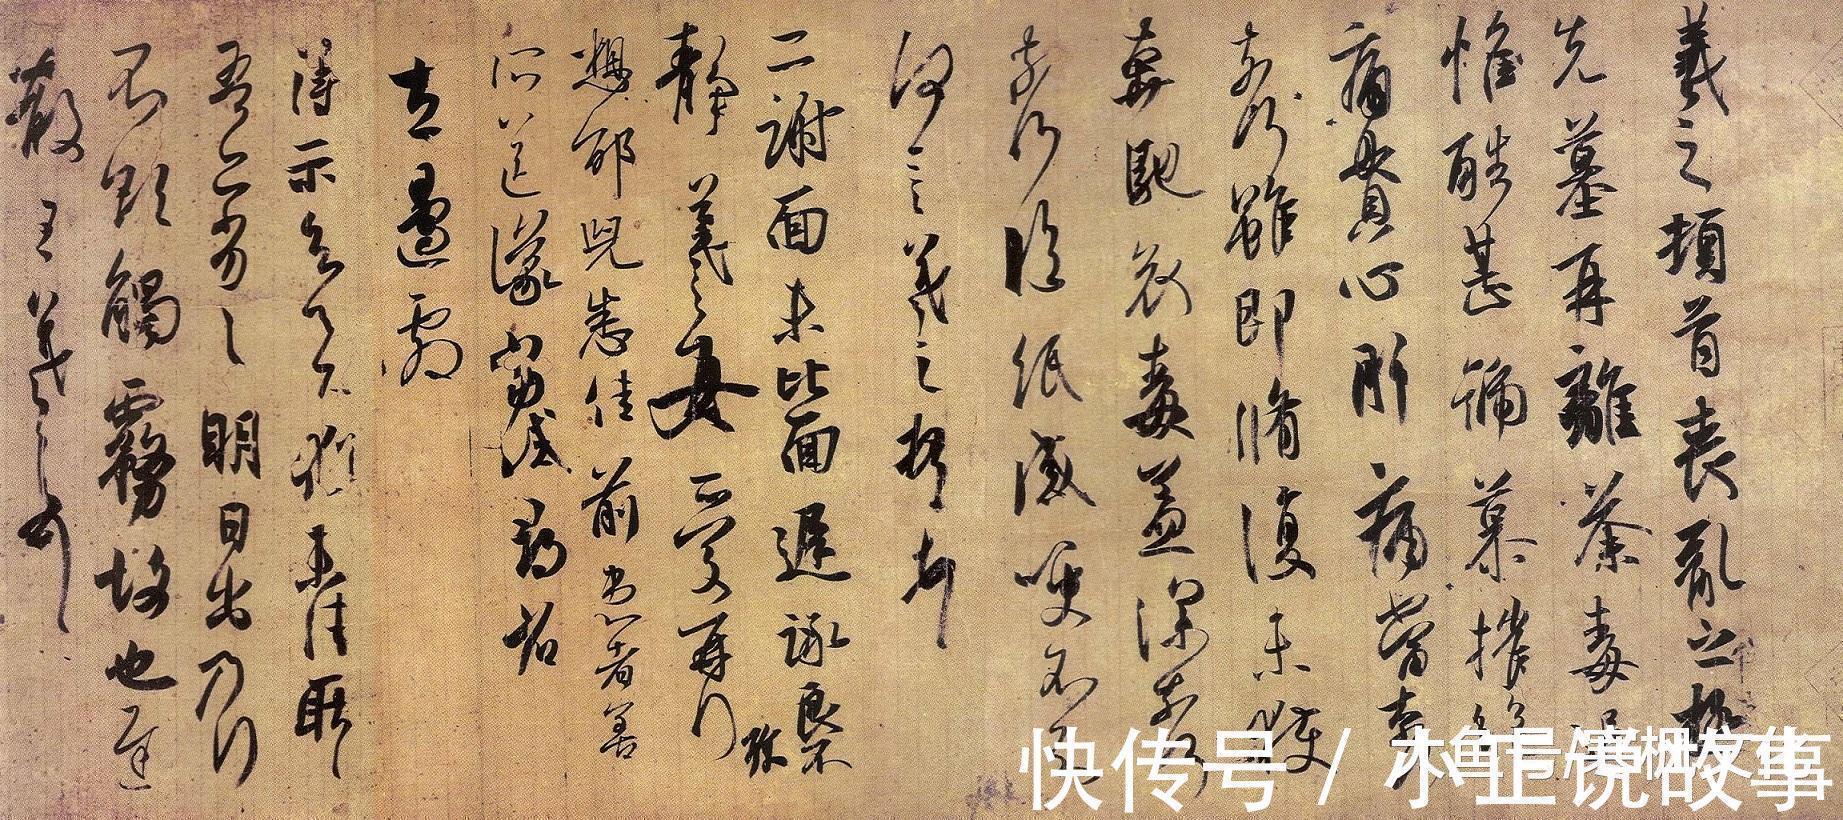 羲之頓首喪亂之極
先墓再離荼毒追
惟酷甚號慕摧絕
痛貫心肝痛當奈
奈何雖即脩復未獲
奔馳哀毒益深奈何
奈何臨紙感哽不知
何言羲之頓首頓首
二謝面未比面遲詠良不
靜羲之女愛愛再拜
想邵兒悉佳前患者善
所送議當試尋省
左邊劇
得示知足下猶未佳耿
吾亦劣劣明日出乃行
不欲觸霧故也遲
散王羲之頓首
快传号/木正说故事